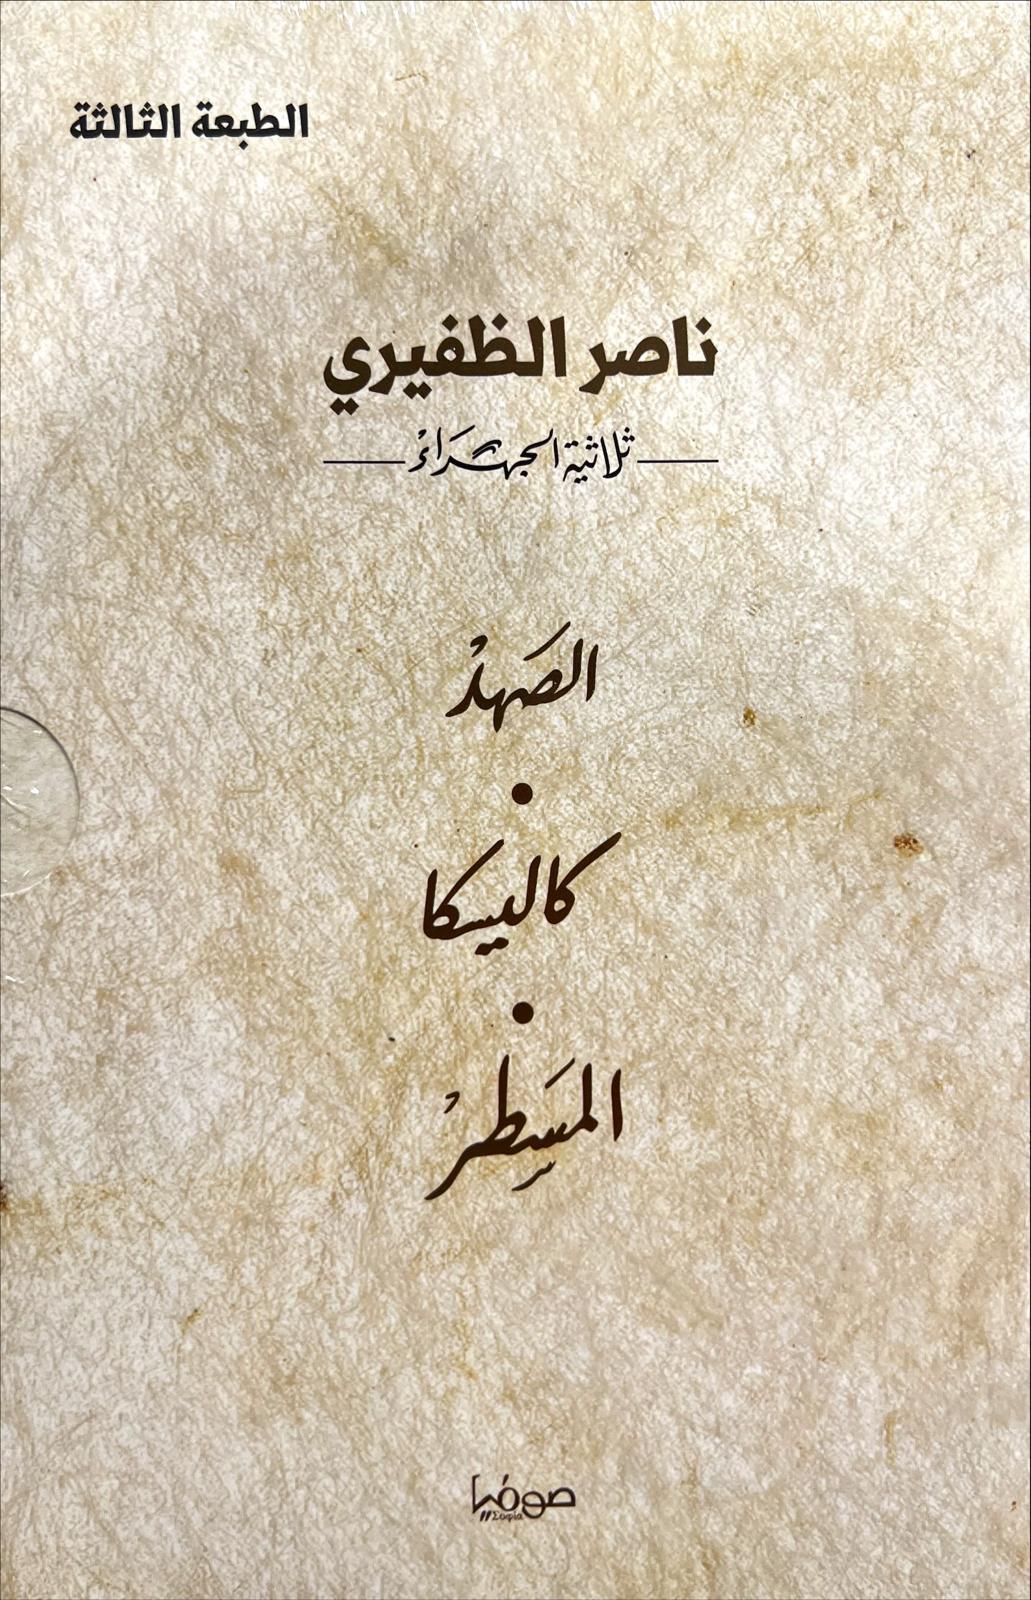 الطبعة الثالثة
ناصر الظفيري
ثلاثية الجهراء
الصَهدْ
كاليسكا
المسَطِرْ
صوفيا
Σοφία